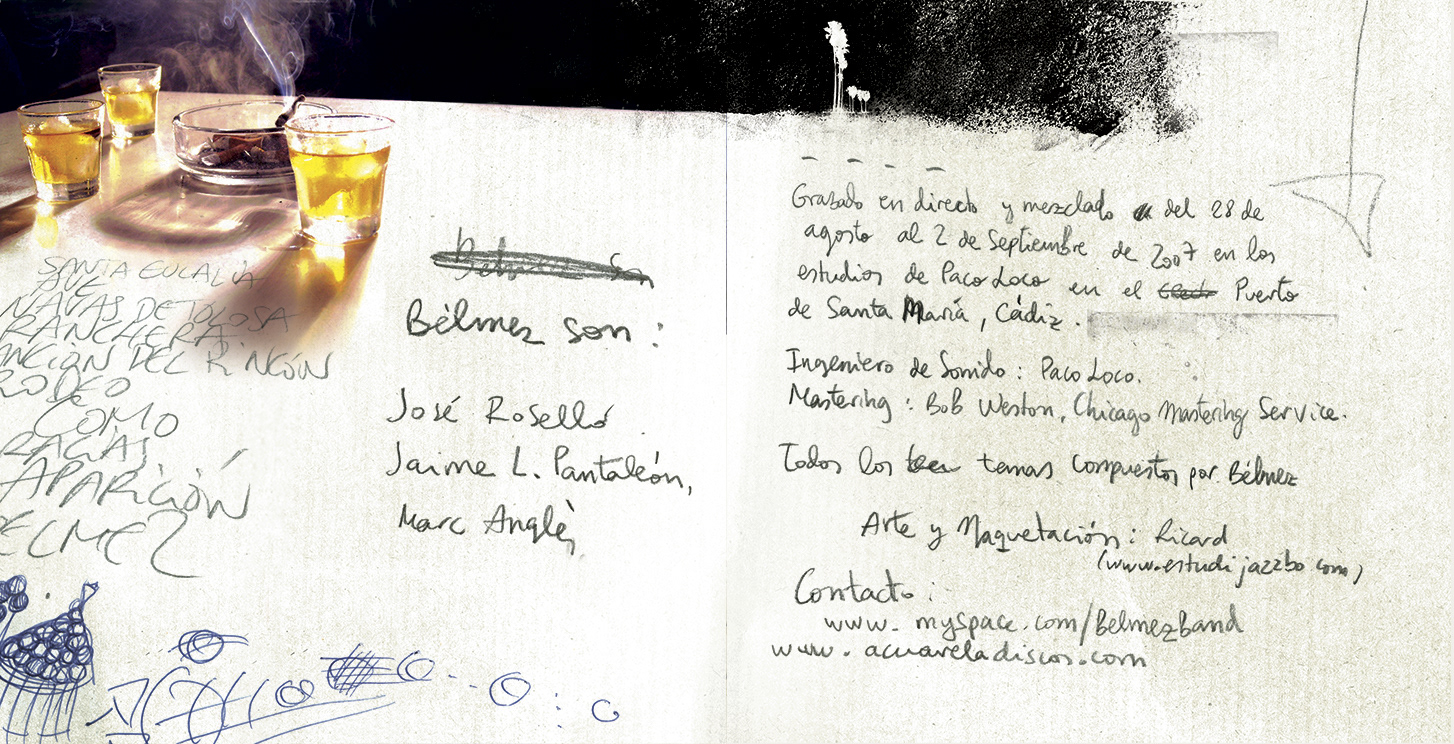 SANTA EUCALIA
AVE
NAVAS DE TOLOSA
RANCHERA
ANCION DEL RINCÓN
RODEO
COMO
RACIAS
APARICIÓN
BELMEZ
Bélmez son
Bélmez son :
José Roselló
Jaime L. Pantaleón,
Marc Anglès
Grabado en directo y mezclado del 28 de
agosto al 2 de Septiembre de 2007 en los
estudios de Paco Loco en el Puerto
de Santa María, Cádiz.
Ingeniero de Sonido : Paco Loco.
Mastering : Bob Weston, Chicago Mastering Service.
Todos los temas compuestos por Bélmez
Arte y Maquetación : Ricard
(www.estudijazzbo.com)
Contacto :
www.myspace.com/Belmezband
www.acuareladiscos.com